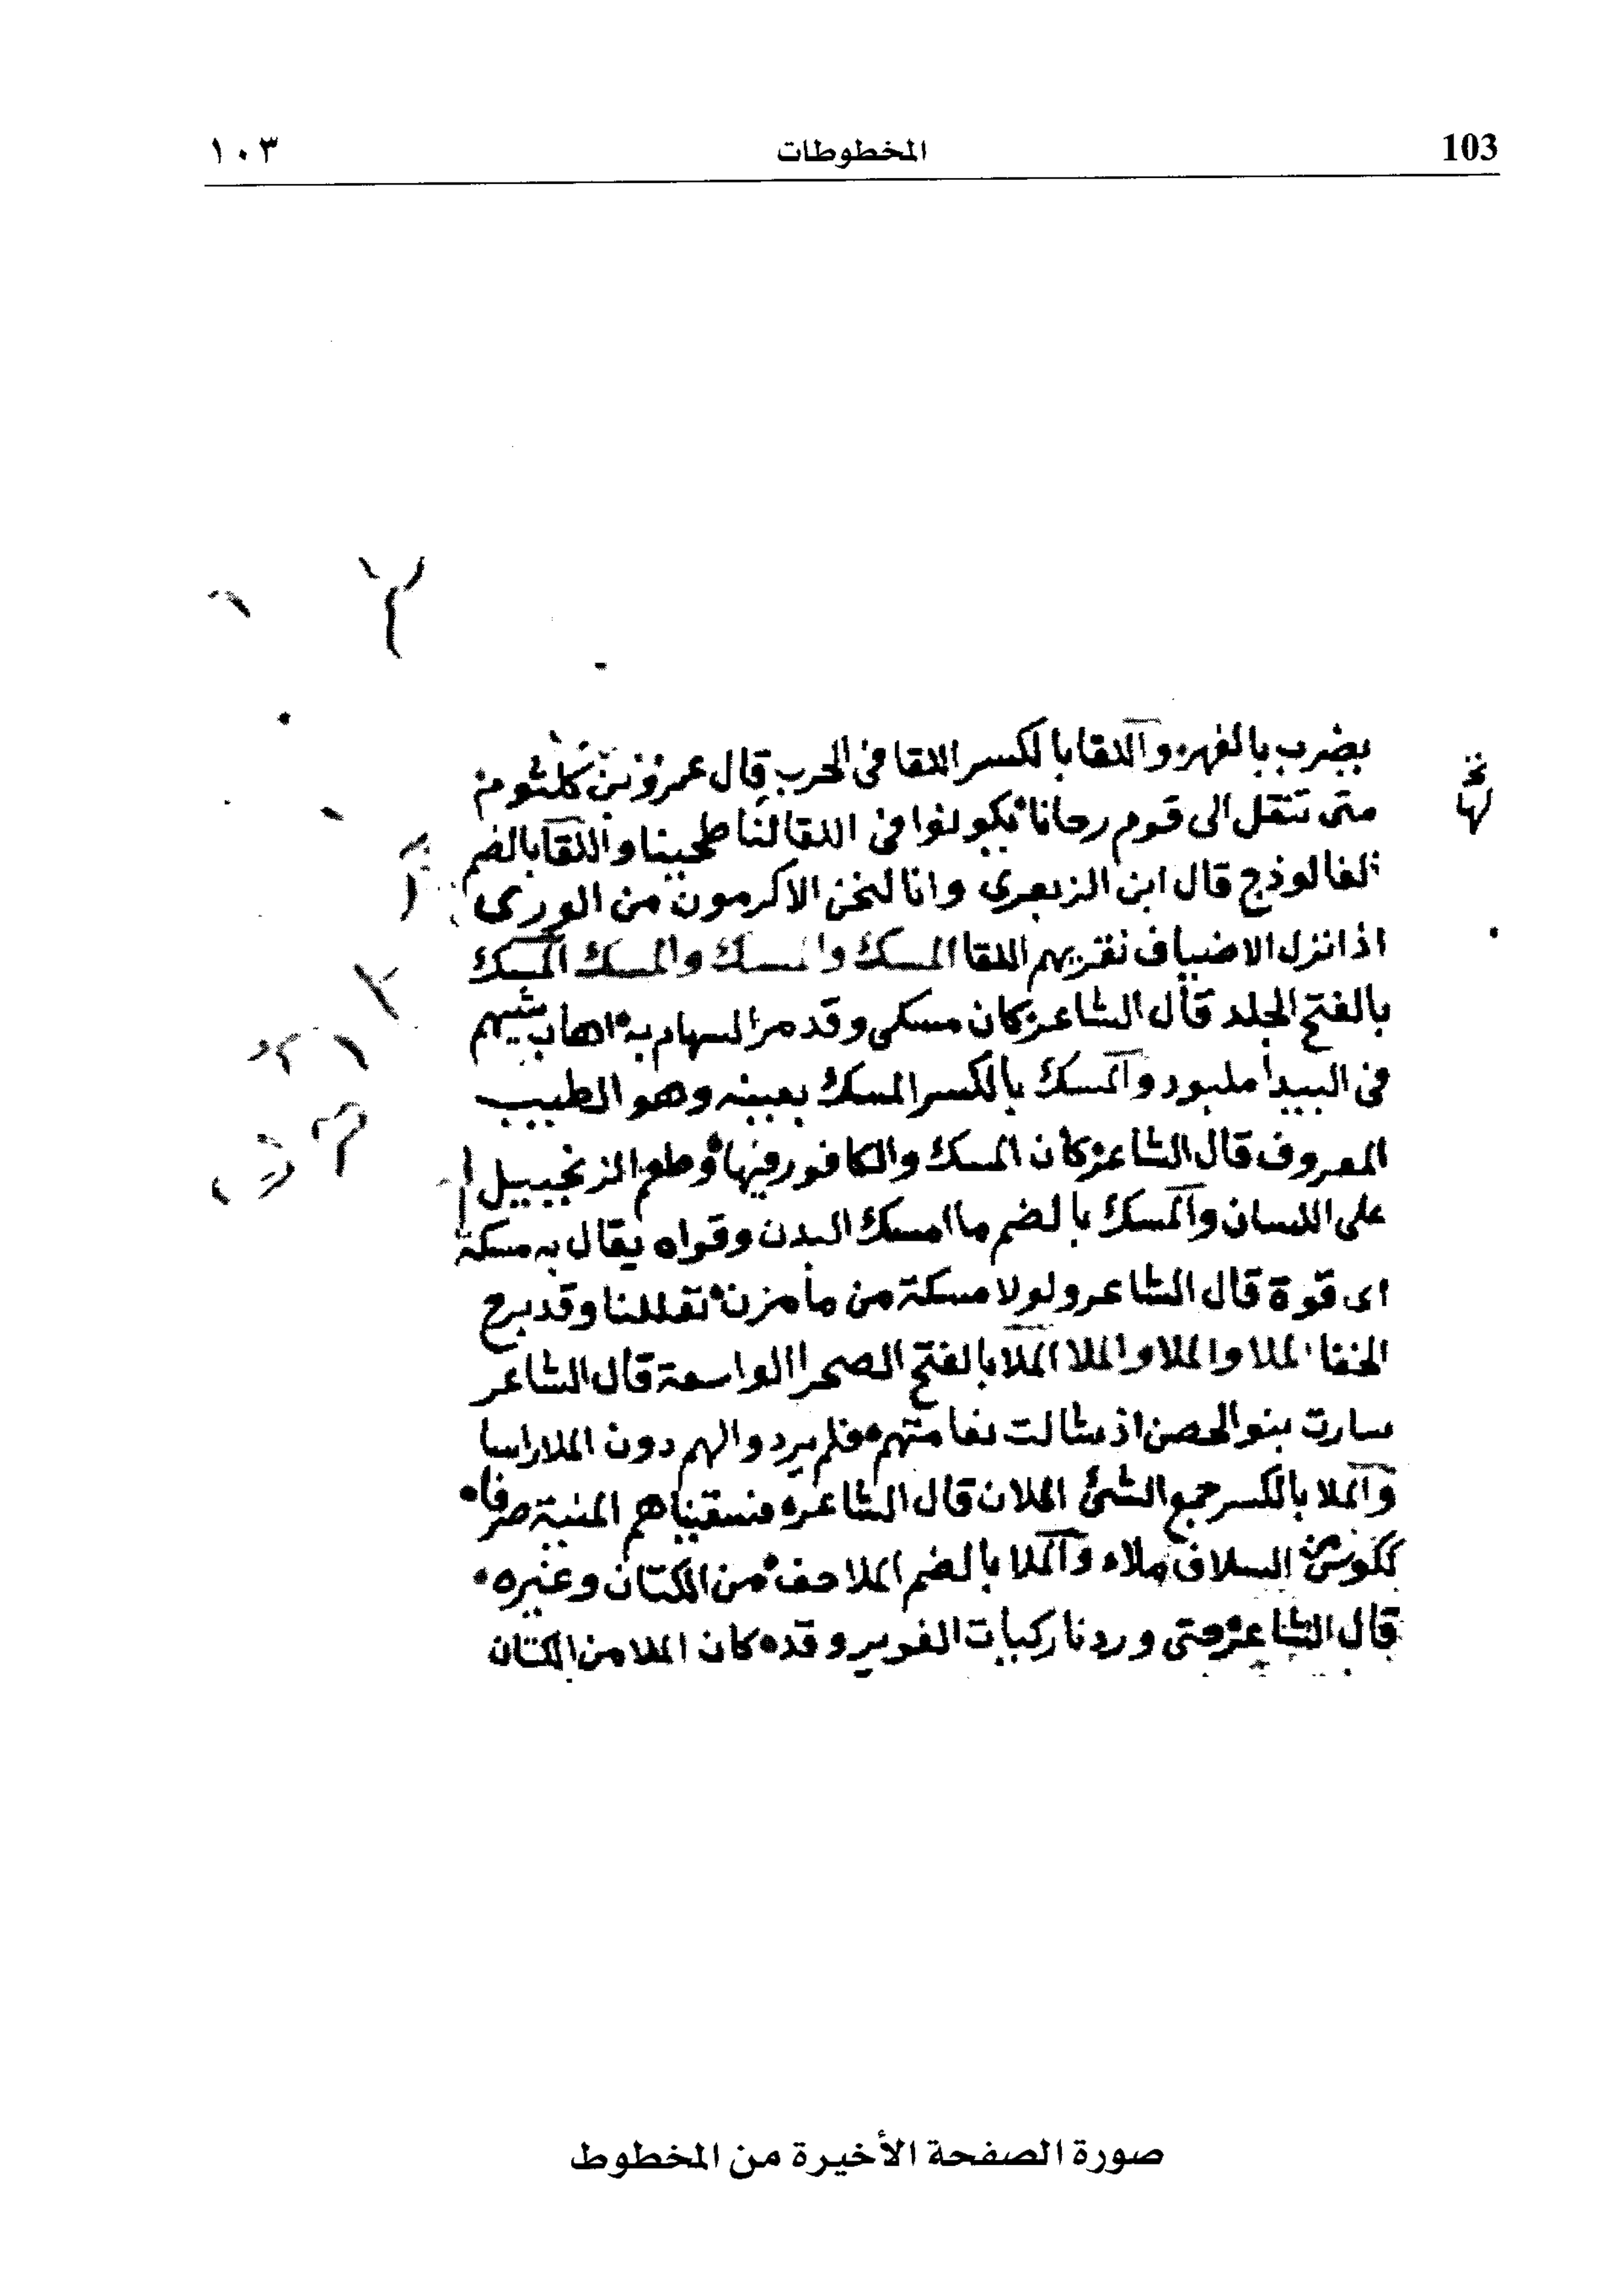 103 المخطوطات ١٠٣
يضرب بالفهر والدقا بالكسر اللقا فى الحرب قال عمرو بن كلثوم
متى ننقل الى قوم رحانا يكونوا فى اللقا لنا طحينا واللقا بالضم
الفالوذج قال ابن الزبعرى وانا لنحن الاكرمون من الورى
اذا نزل الاضياف نقريهم اللقا المسك والمسك والمسك المسك
بالفتح الجلد قال الشاعر كان مسكى وقد مر السهام به اهاب شيهم
فى البيدا ملبود والمسك بالكسر المسك بعينه وهو الطيب
المعروف قال الشاعر كان المسك والكافور فيها وطعم الزنجبيل
على اللسان والمسك بالضم ما امسك البدن وقواه يقال به مسكة
اى قوة قال الشاعر ولولا مسكة من ما مزن تغللنا وقد برح
الخفا الملا والملا والملا الملا بالفتح الصحرا الواسعة قال الشاعر
سارت بنو الحصن اذ شالت نعامتهم فلم يردوا لهم دون الملا راسا
والملا بالكسر جمع الشئ الملان قال الشاعر فسقيناهم المنية صرفا
ككوس من السلاف ملاء والملا بالضم الملاحف من الكتان وغيره
قال الشاعر حتى وردنا ركيات الغوير وقد كان الملا من الكتان
صورة الصفحة الأخيرة من المخطوط